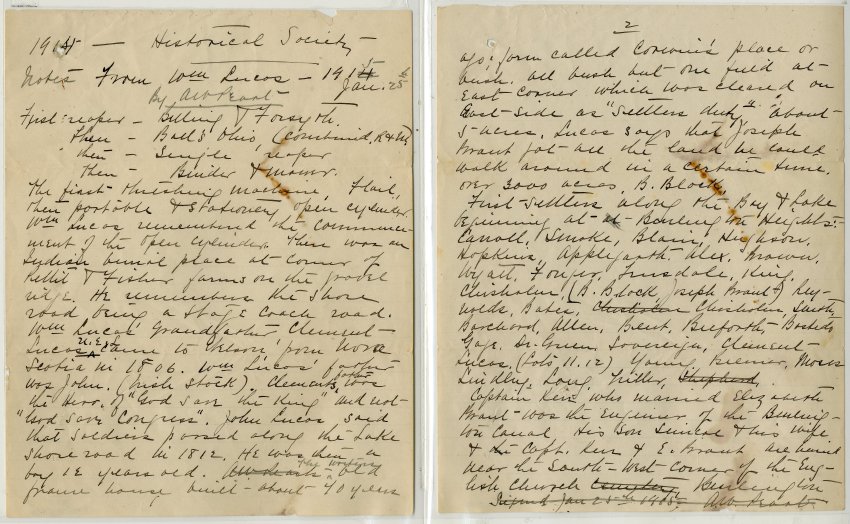 1915 — Historical Society —
Notes From Wm Lucas — 1915
Jan. 25th
By A.W. Peart
First reaper — Billing & Forsyth.
Then — Ball's Ohio, (combined, R & M)
Then — Single reaper
Then — Binder & mower.
The first threshing machine, Flail,
then portable & stationery open cylinder.
Wm Lucas remembered the commence-
ment of the open cylinder. There was an
Indian burial place at corner of
& Fisher farms on the gravel
ridge. He remembers the Shore
road being a Stage Coach road.
Wm Lucas' Grandfather Clement
Lucas came to Nelson from Nova
Scotia in 1806. Wm Lucas' father
was John. (Irish Stock). Clement's was
the Hero of "God save the King" and not
"God save Congress". John Lucas said
that soldiers passed along the Lake
Shore road in 1812. He was then a
boy 12 years old. old
frame house built about 40 years
2
ago; form called Corwin's place or
bush. All bush but one field at
East corner which was cleared on
East side as "Settlers duty" about
5 acres. Lucas says that Joseph
Brant got all the land he could
walk around in a certain time.
over 3000 acres, B. Block.
First Settlers along the Bay & Lake
beginning at Burlington Heights:—
Carroll, Smoke, Blair, Hignson,
Hopkins, Applegarth, Alex. Brown,
Wyatt, Fonger, Truesdale, King,
Chisholm, (B. Block, Joseph Brant) Rey-
nolds, Bates, Chisholm Chisholm, Smith,
Barchard, Allen, Brent, Bieforth
Gage, Dr. Green, Sovereign, Clement
Lucas, (Lots 11.12) Young, Bremer, Moses
Lindley, Long, Triller, Shepherd.
Captain Kerr who married Elizabeth
Brant was the engineer of the Burling-
ton Canal. His Son Simcoe & his wife
& Capt. Kerr & E. Brant are buried
near the South West corner of the Eng-
lish Church Cemetery Burlington
Signed Jan 25th 1915, A.W. Peart